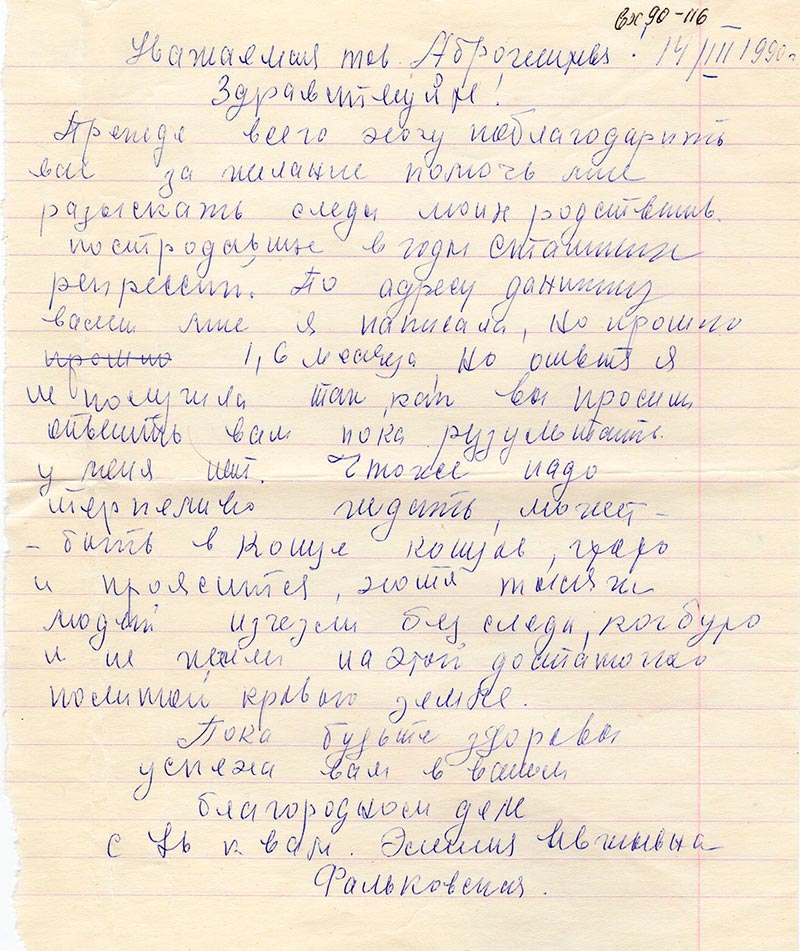 вх 90-116
Уважаемая тов. 14/III 1990г
Здравствуйте!
Прежде всего хочу поблагодарить
вас за желание помочь мне
разыскать следы моих родственик.
пострадавших в годы сталински
репрессий. По адресу данному
вами мне я написала, но прошло
прошло 1,6 месяца, но ответа я
не получила так как вы просили
ответить вам пока рузультата
у меня нет. Чтоже надо
терпеливо ждать, может-
-быть в конце концов,
и прояснится, хотя тысячи
людей изчезли без следа, какбудто
и не жили на этой достаточно
политой кровью земле.
Пока будьте здоровы
успеха вам в вашем
благородном деле
с ув к вам. Эмилия
Фальковская.